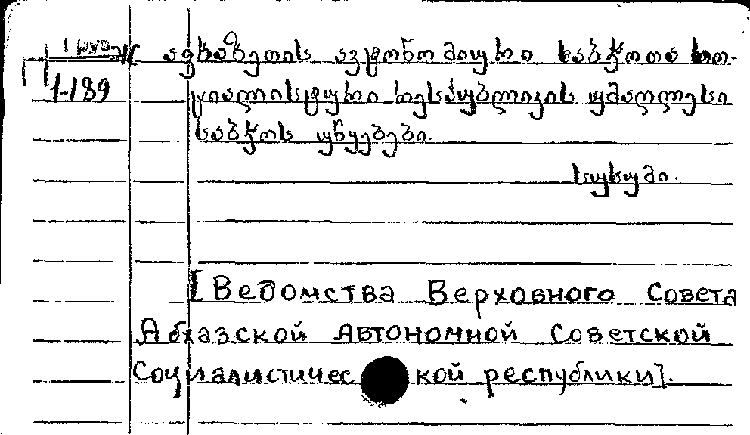 აფხაზეთის ავტონომიური საბჭოთა სო-
1-189
ციალისტური რესპუბლიკის უმაღლესი
საბჭოს უწყებები.
სოხუმი.
[Ведомства Верховного Совета
Абхазской Автономной Советской
Социалистичес кой республики].